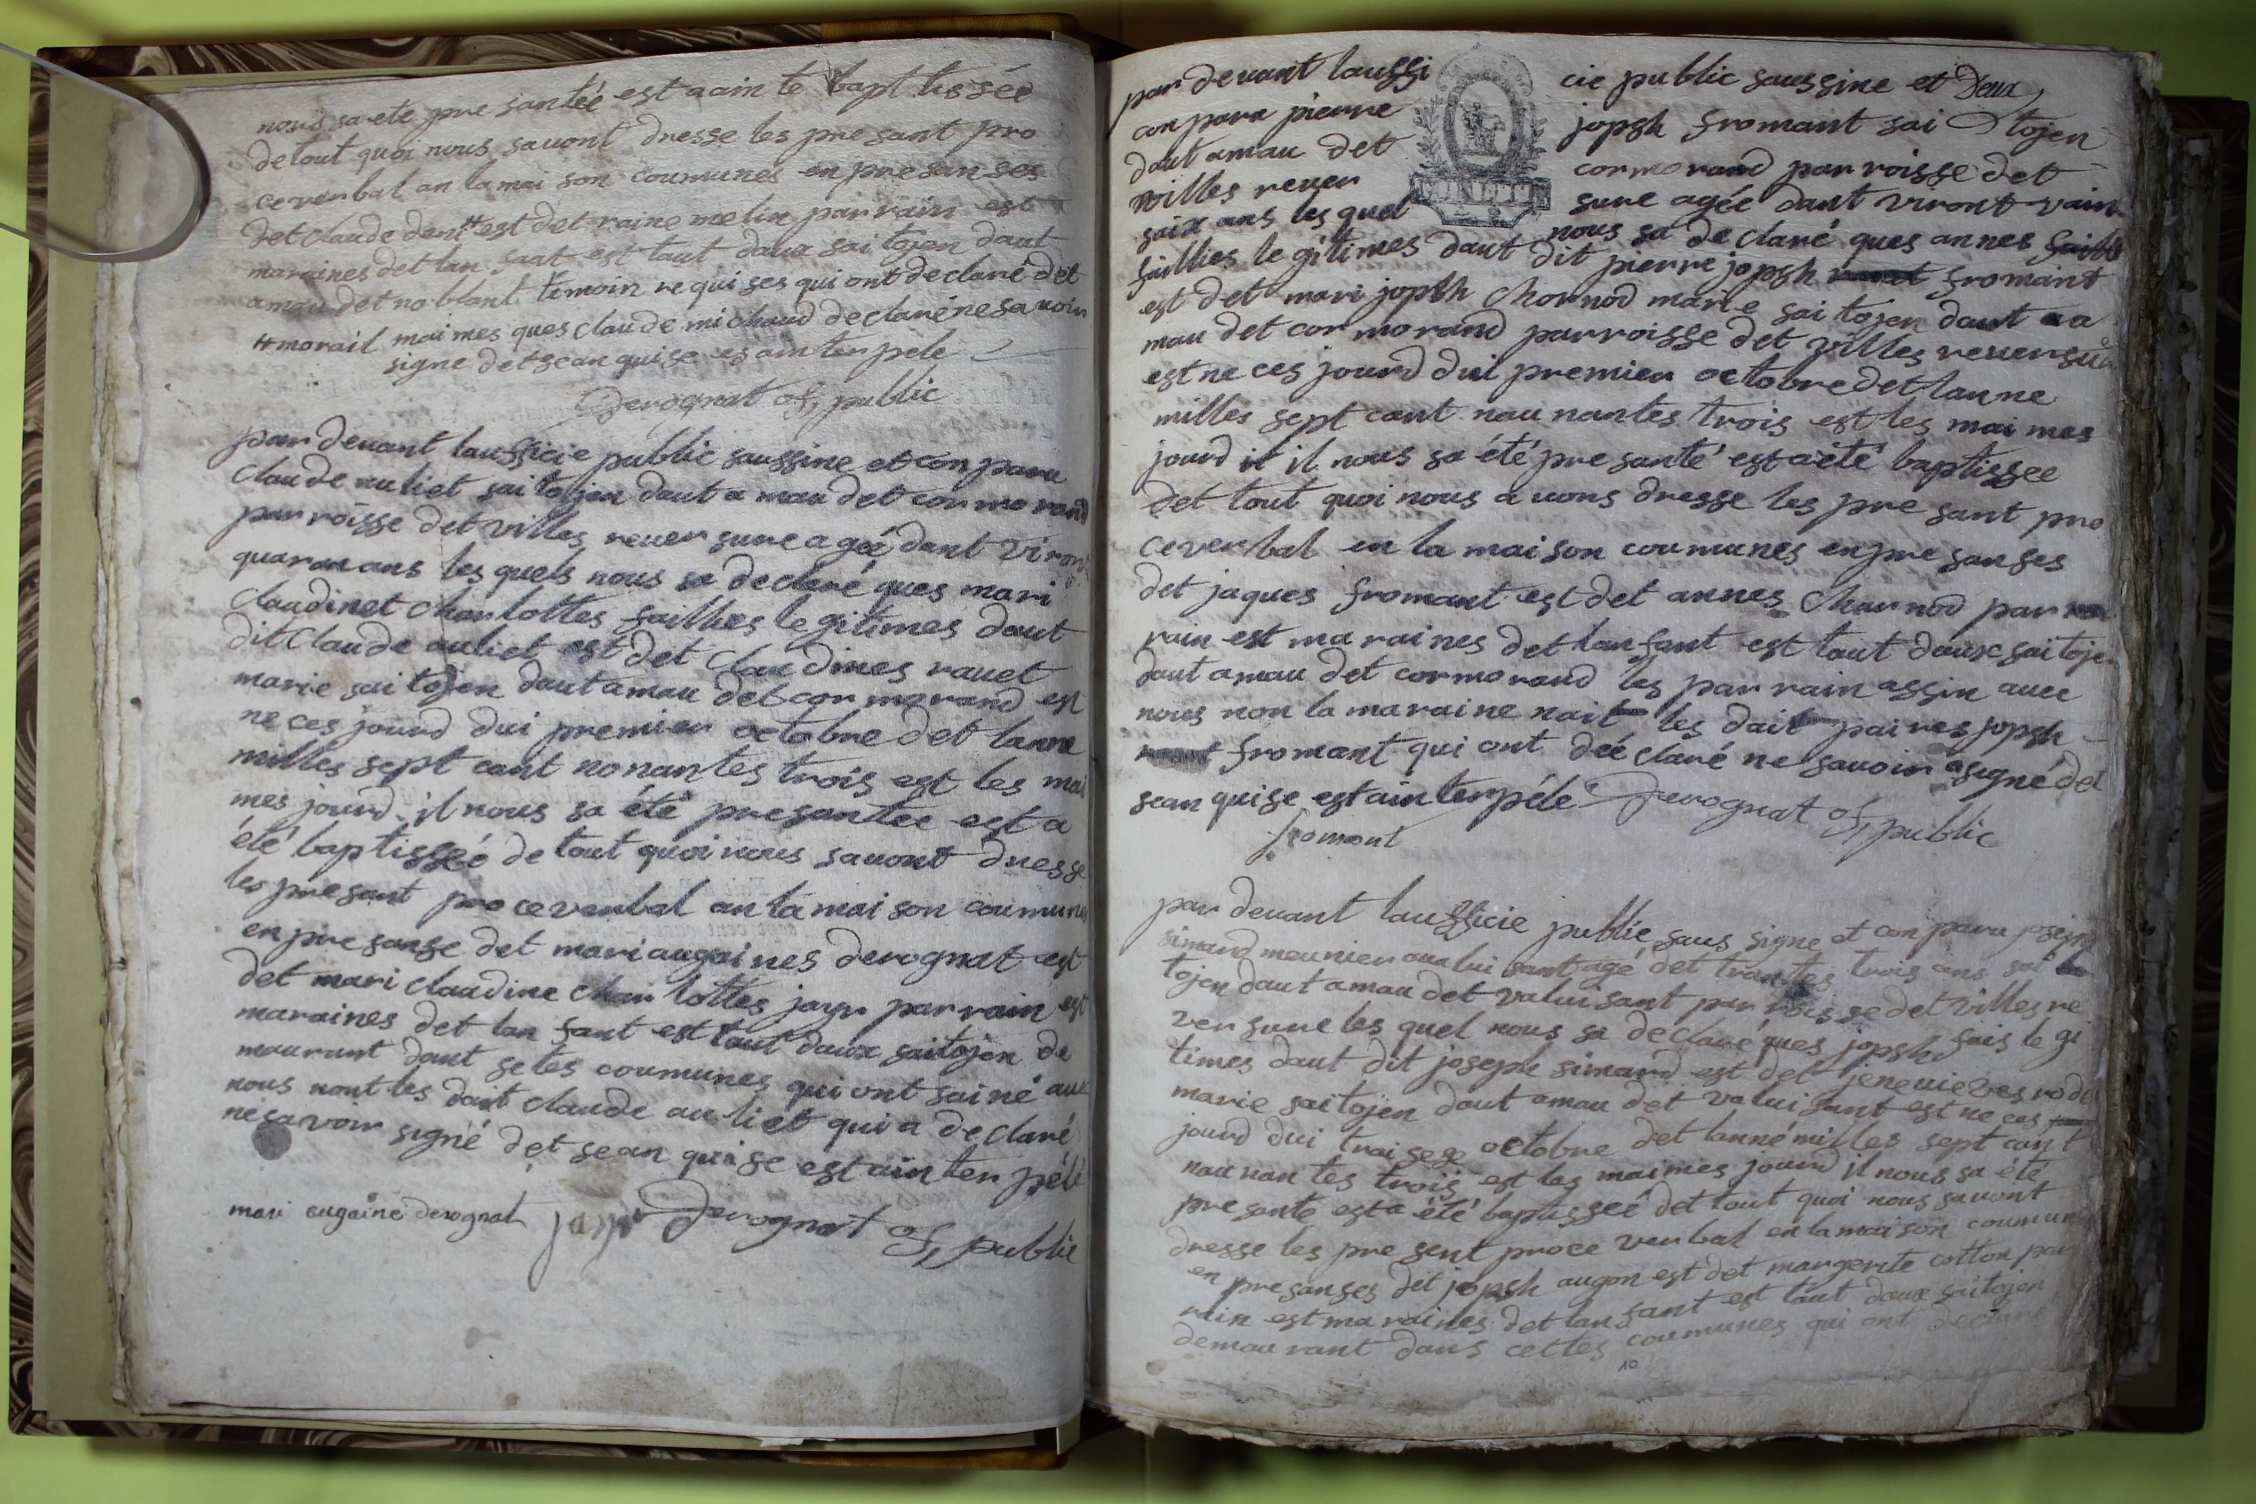 nous sa ete pre santéé est a ainte bapt tissée
detout quoi nous savont dresse les pre sant pro
ce verbal an la mai son coumunes en pre san ses
det claude dent est det raine melin par rain est
maraines det lan fant est taut daux sai tojen daut
amau det noblant témoin re qui ses qui ont declaré det
morail mai mes ques claude michaud declaré ne savoir
signe det sean qui se es ain ter pele
Derognat of public
par devant laufficie public saussine et conpara
claude auliet sai tojen daut a mau det cormo rand
par roisse det villes rever sure a géé dant viron
quaran ans les quels nous sa declaré ques mari
claudinet charlottes faillies legitimes daut
dit claude auliet est det claudines ravet
marie sai tojen daut amau det cor morand est
ne ces jourd dui premier octobre det lanne
milles sept cant nonantes trois est les mai
mes jourd il nous sa été presantee est a
été baptisséé de tout quoi nous savont dresse
les presant proceverbal an la mai son coumunes
en pre sanse det mari augaines derognat est
det mari claudine charlottes jayr parrain est
maraines det lan fant est taut daux saitojen de
maurant dant setes coumunes qui ont sainé avec
nous nont les dait claude au liet qui a declaré
ne savoir signé det sean qui se est ain ter pélé
mari augaine derognat jayr Derognat of public
par devant lauffi cie public saussine et Deux
conpara pierre jopsh fromant sai tojen
daut amau det cormorand parroisse det
villes rever sure agéé dant viront vain
saix ans les quel nous sa declaré ques annes
faillies legitimes daut dit pierre jopsh fromant
est det mari jopsh chornod marie sai tojen daut aa
mau det cormorand parroisse det villes reversur
est ne ces jourd dui premier octobre det lanne
milles sept cant nau nantes trois est les mai mes
jourd it il nous sa été pre santé est a été baptissee
det tout quoi nous avons dresse les pre sant pro
ceverbal en la maison coumunes en pre sanses
det jaques fromant est det annes charnod par
rain est ma raines det lan fant est taut daux saitojen
daut amau det cormorand les par rain assin avec
nous non la maraine nait les dait paires jopsh
fromant qui ont déé claré ne savoir a signé det
sean qui se est ain ter péle Derognat of public
fromont
par devant laufficie public saus signe et con para joseph
simard meunier avalui sant agé det trantes trois ans sai
tojen daut amau det valuisant par roisse det villes re
versure les quel nous sa declaré ques jopsh fais lé gi
times daut dit joseph simard est det jeneviesves rodet
marie saitojen daut amau det valuisant est ne ces
jourd dui traisese octobre det lanné milles sept cant
nau nantes trois est les maimes jourd il nous sa été
pre sante est a été baptisséé det tout quoi nous savont
dresse les pre sent proce verbal en la maison coumun
en pre sanses det jopsh augon est det margerite cotton par
rain est ma raines det lan fant est taut daux saitojen
demaurant dans cettes coumunes qui ont declaré